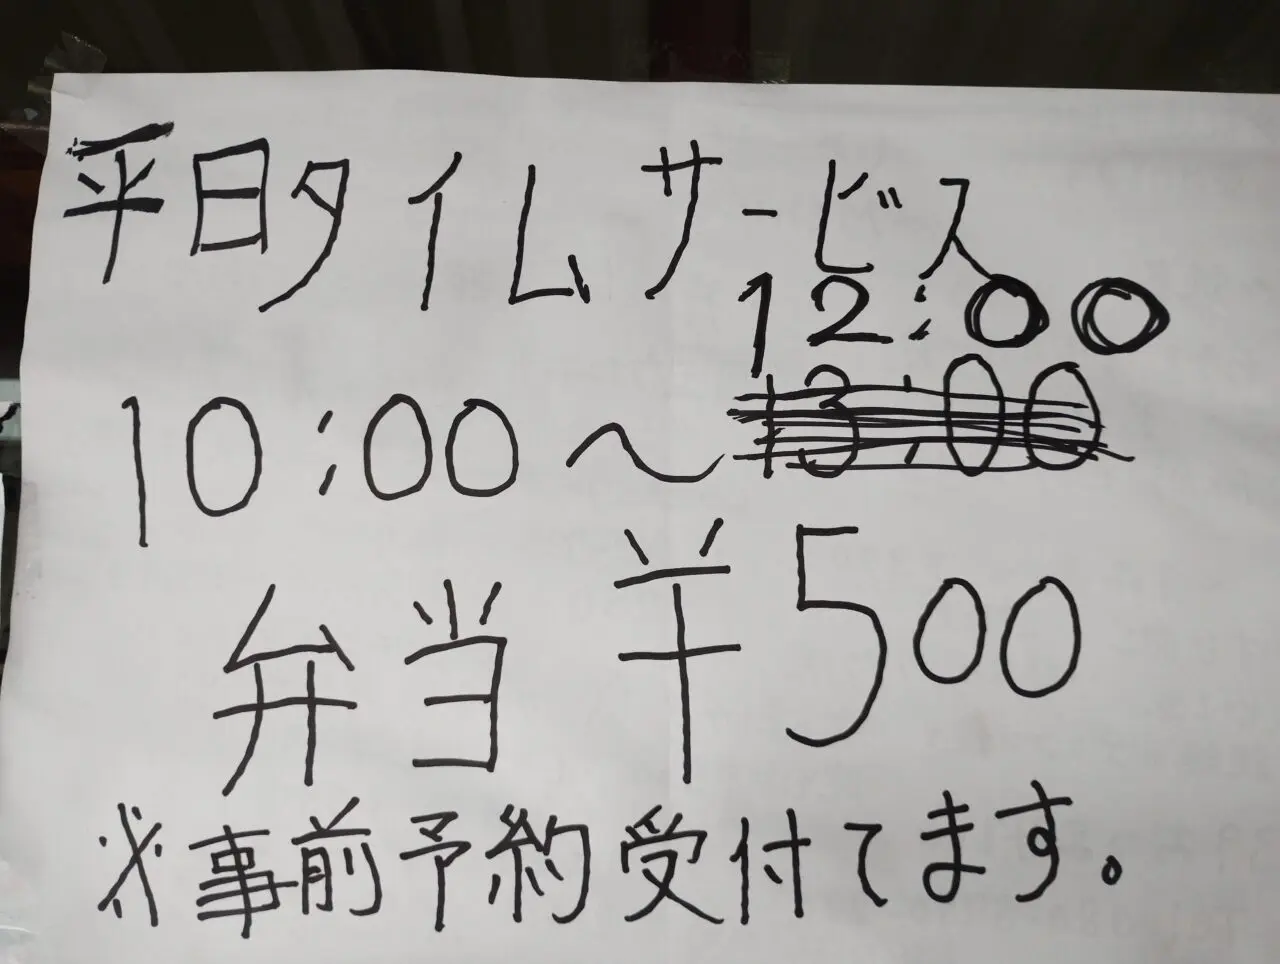 平日タイムサービス
12:00
10:00〜13:00
弁当 ¥500
※事前予約受付てます。